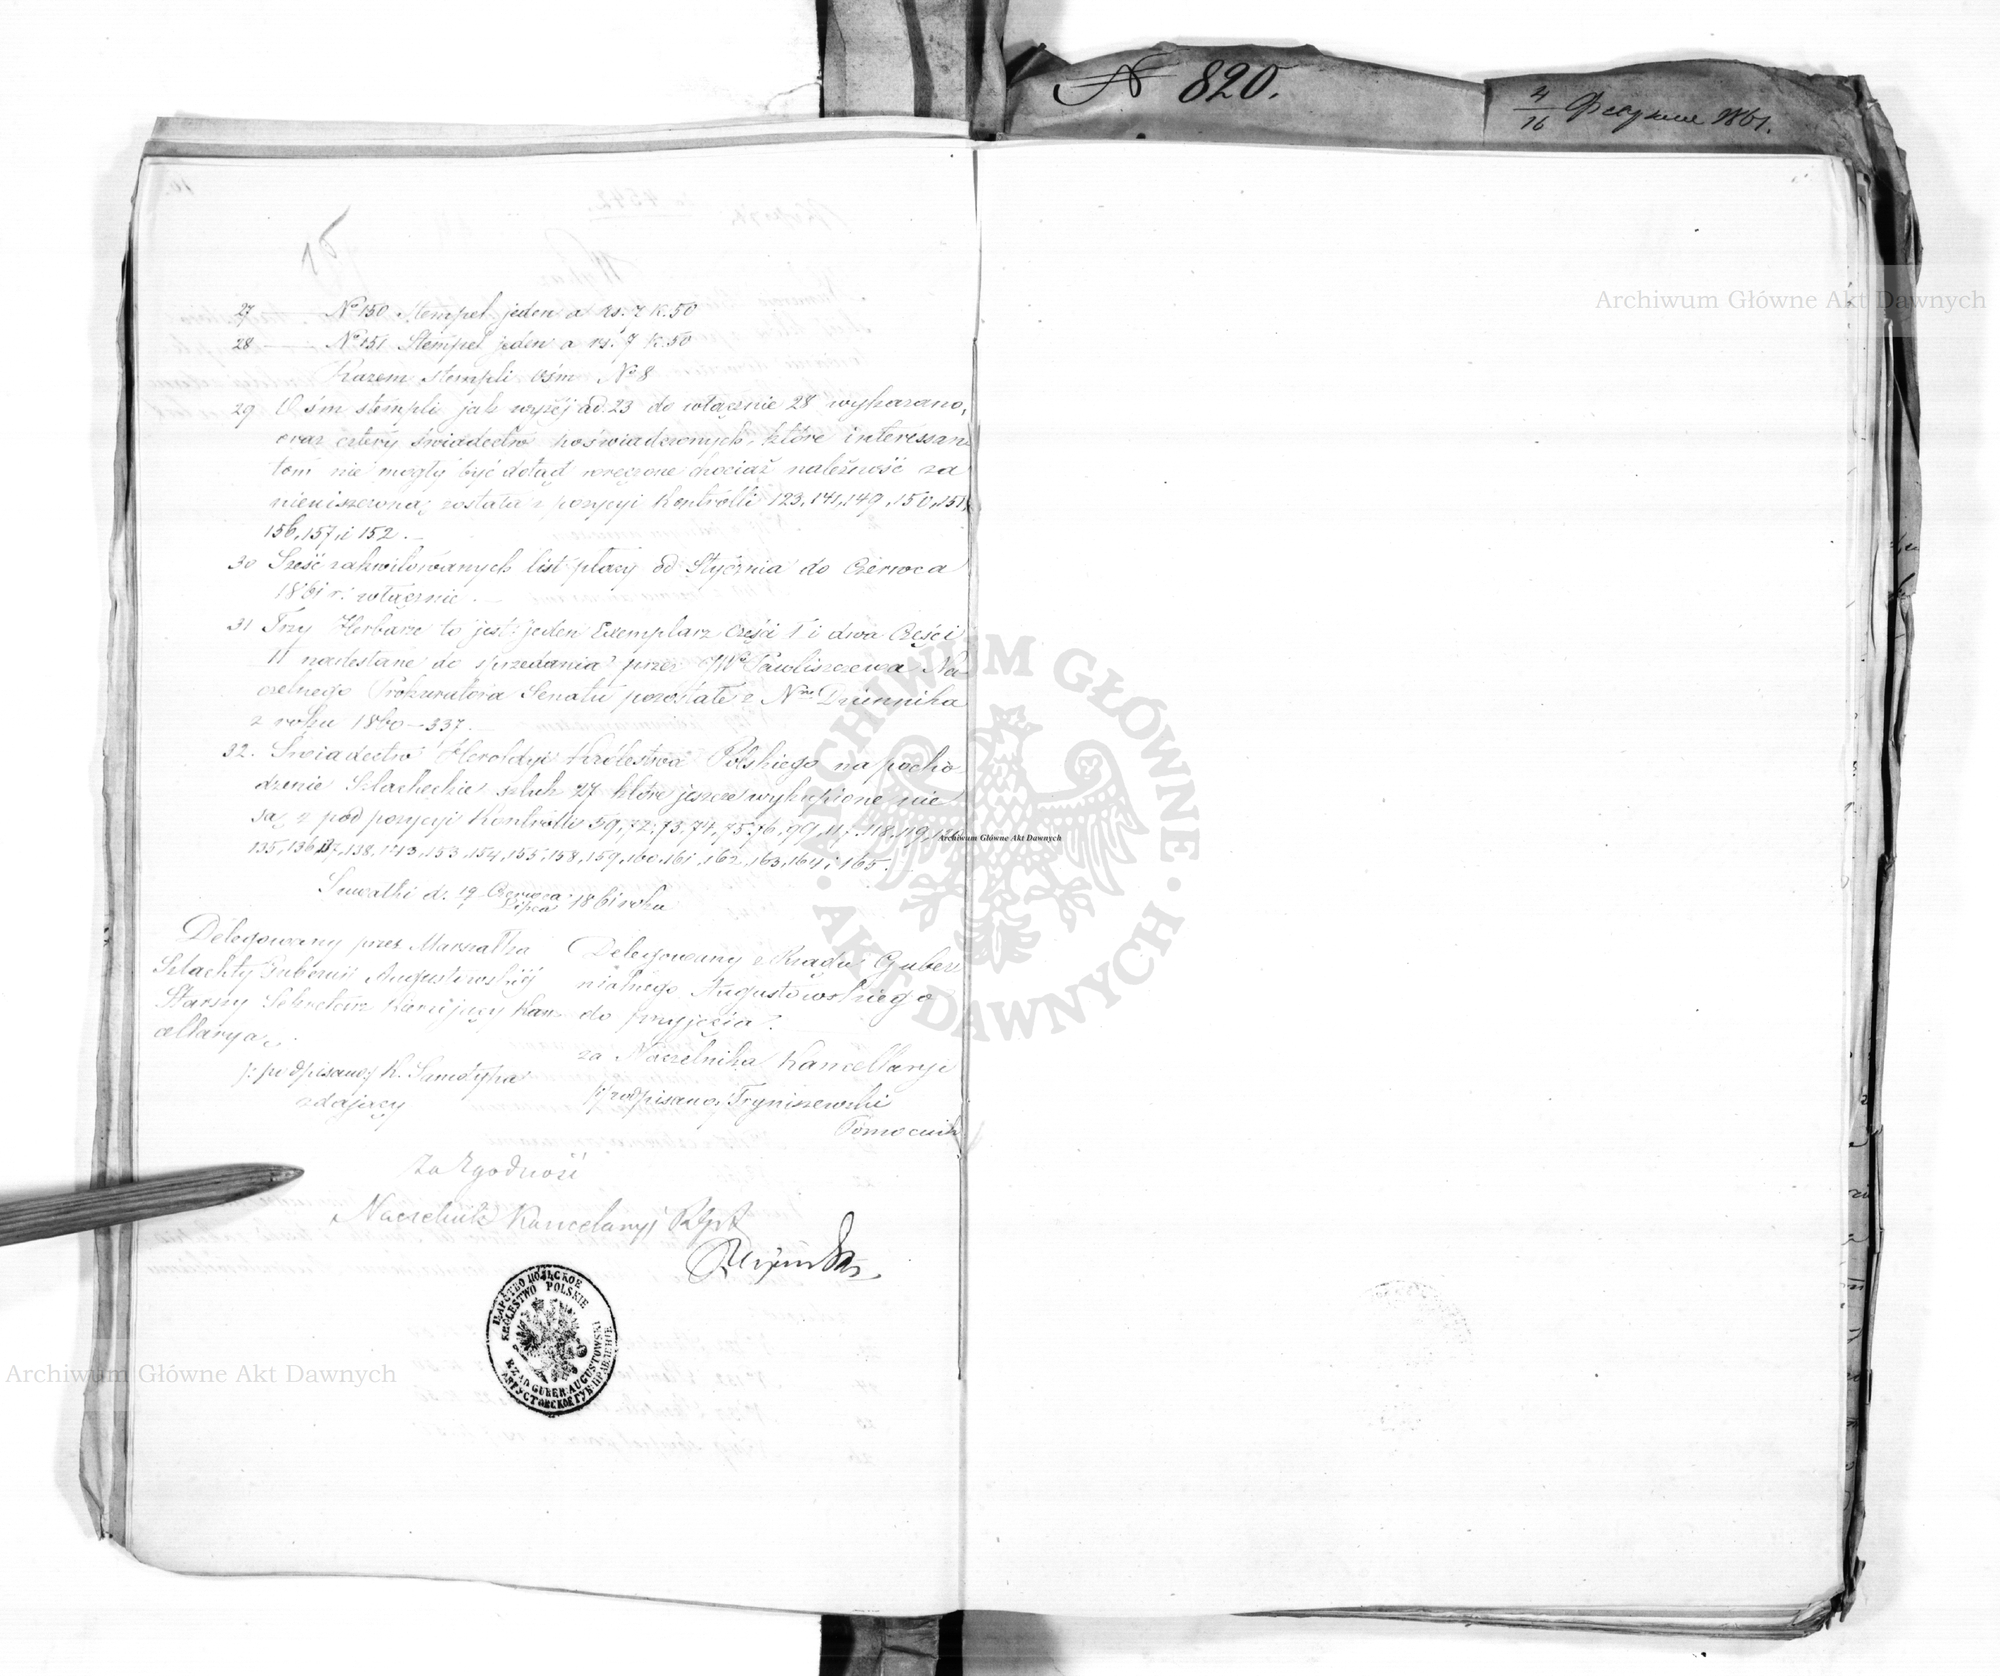 N 820.
4/16 1861.
27 — No 150 Stempel jeden a rs. 7 k. 50
28 — No 151 Stempel jeden a rs. 7 k. 50
Razem stempli ośm No 8
29 Ośm stempli jak wyżéj od 23 do włącznie 28 wykazano,
oraz cztery świadectw poświadczonych, które interessan
tom nie mogły być dotąd wręczone chociaż należność za
nie uiszczoną została z pozycyi Kontrolli 123, 141, 149, 150, 151,
156, 157, i 152. —
30 Sześć zakwitowanych list płacy od Stycznia do Czerwca
1861 r: włącznie. —
31 Trzy Herbarze to jest: jeden Exemplarz Części I i dwa Części
II nadesłane do sprzedania przez Wo Pawliszczewa Na
czelnego Prokuratora Senatu pozostałe z Nru Dziennika
z roku 1860 — 337. —
32. Świadectw Heroldyi Królestwa Polskiego na pocho
dzenie Szlacheckie sztuk 27 które jeszcze wykupione nie
są z pod pozycyi Kontrolli 59, 72, 73, 74, 75, 76, 99, 117, 118, 119,
135, 136, 137, 138, 143, 153, 154, 155, 158, 159, 160, 161, 162, 163, 164 i 165. —
Suwałki d. 19 Czerwca/1 Lipca 1861 roku
Delegowany przez Marszałka
Szlachty Gubernii Augustowskiéj
Starszy Sekretarz kierujący Kan
cellaryą.
/: podpisano:/ K. Samotyha
zdający
Delegowany z Rządu Guber
nialnego Augustowskiego
do przyjęcia.
za Naczelnika Kancellaryi
/:podpisano:/ Tryniszewski
Pomocnik
Za Zgodność
Naczelnik Kancelaryi
ЦАРСТВО ПОЛЬСКОЕ
KRÓLESTWO POLSKIE
RZĄD GUBER. AUGUSTOWSKI
АВГУСТОВСКОЕ ГУБ. ПРАВЛЕНІЕ
Archiwum Główne Akt Dawnych
ARCHIWUM GŁÓWNE
AKT DAWNYCH
Archiwum Główne Akt Dawnych
Archiwum Główne Akt Dawnych